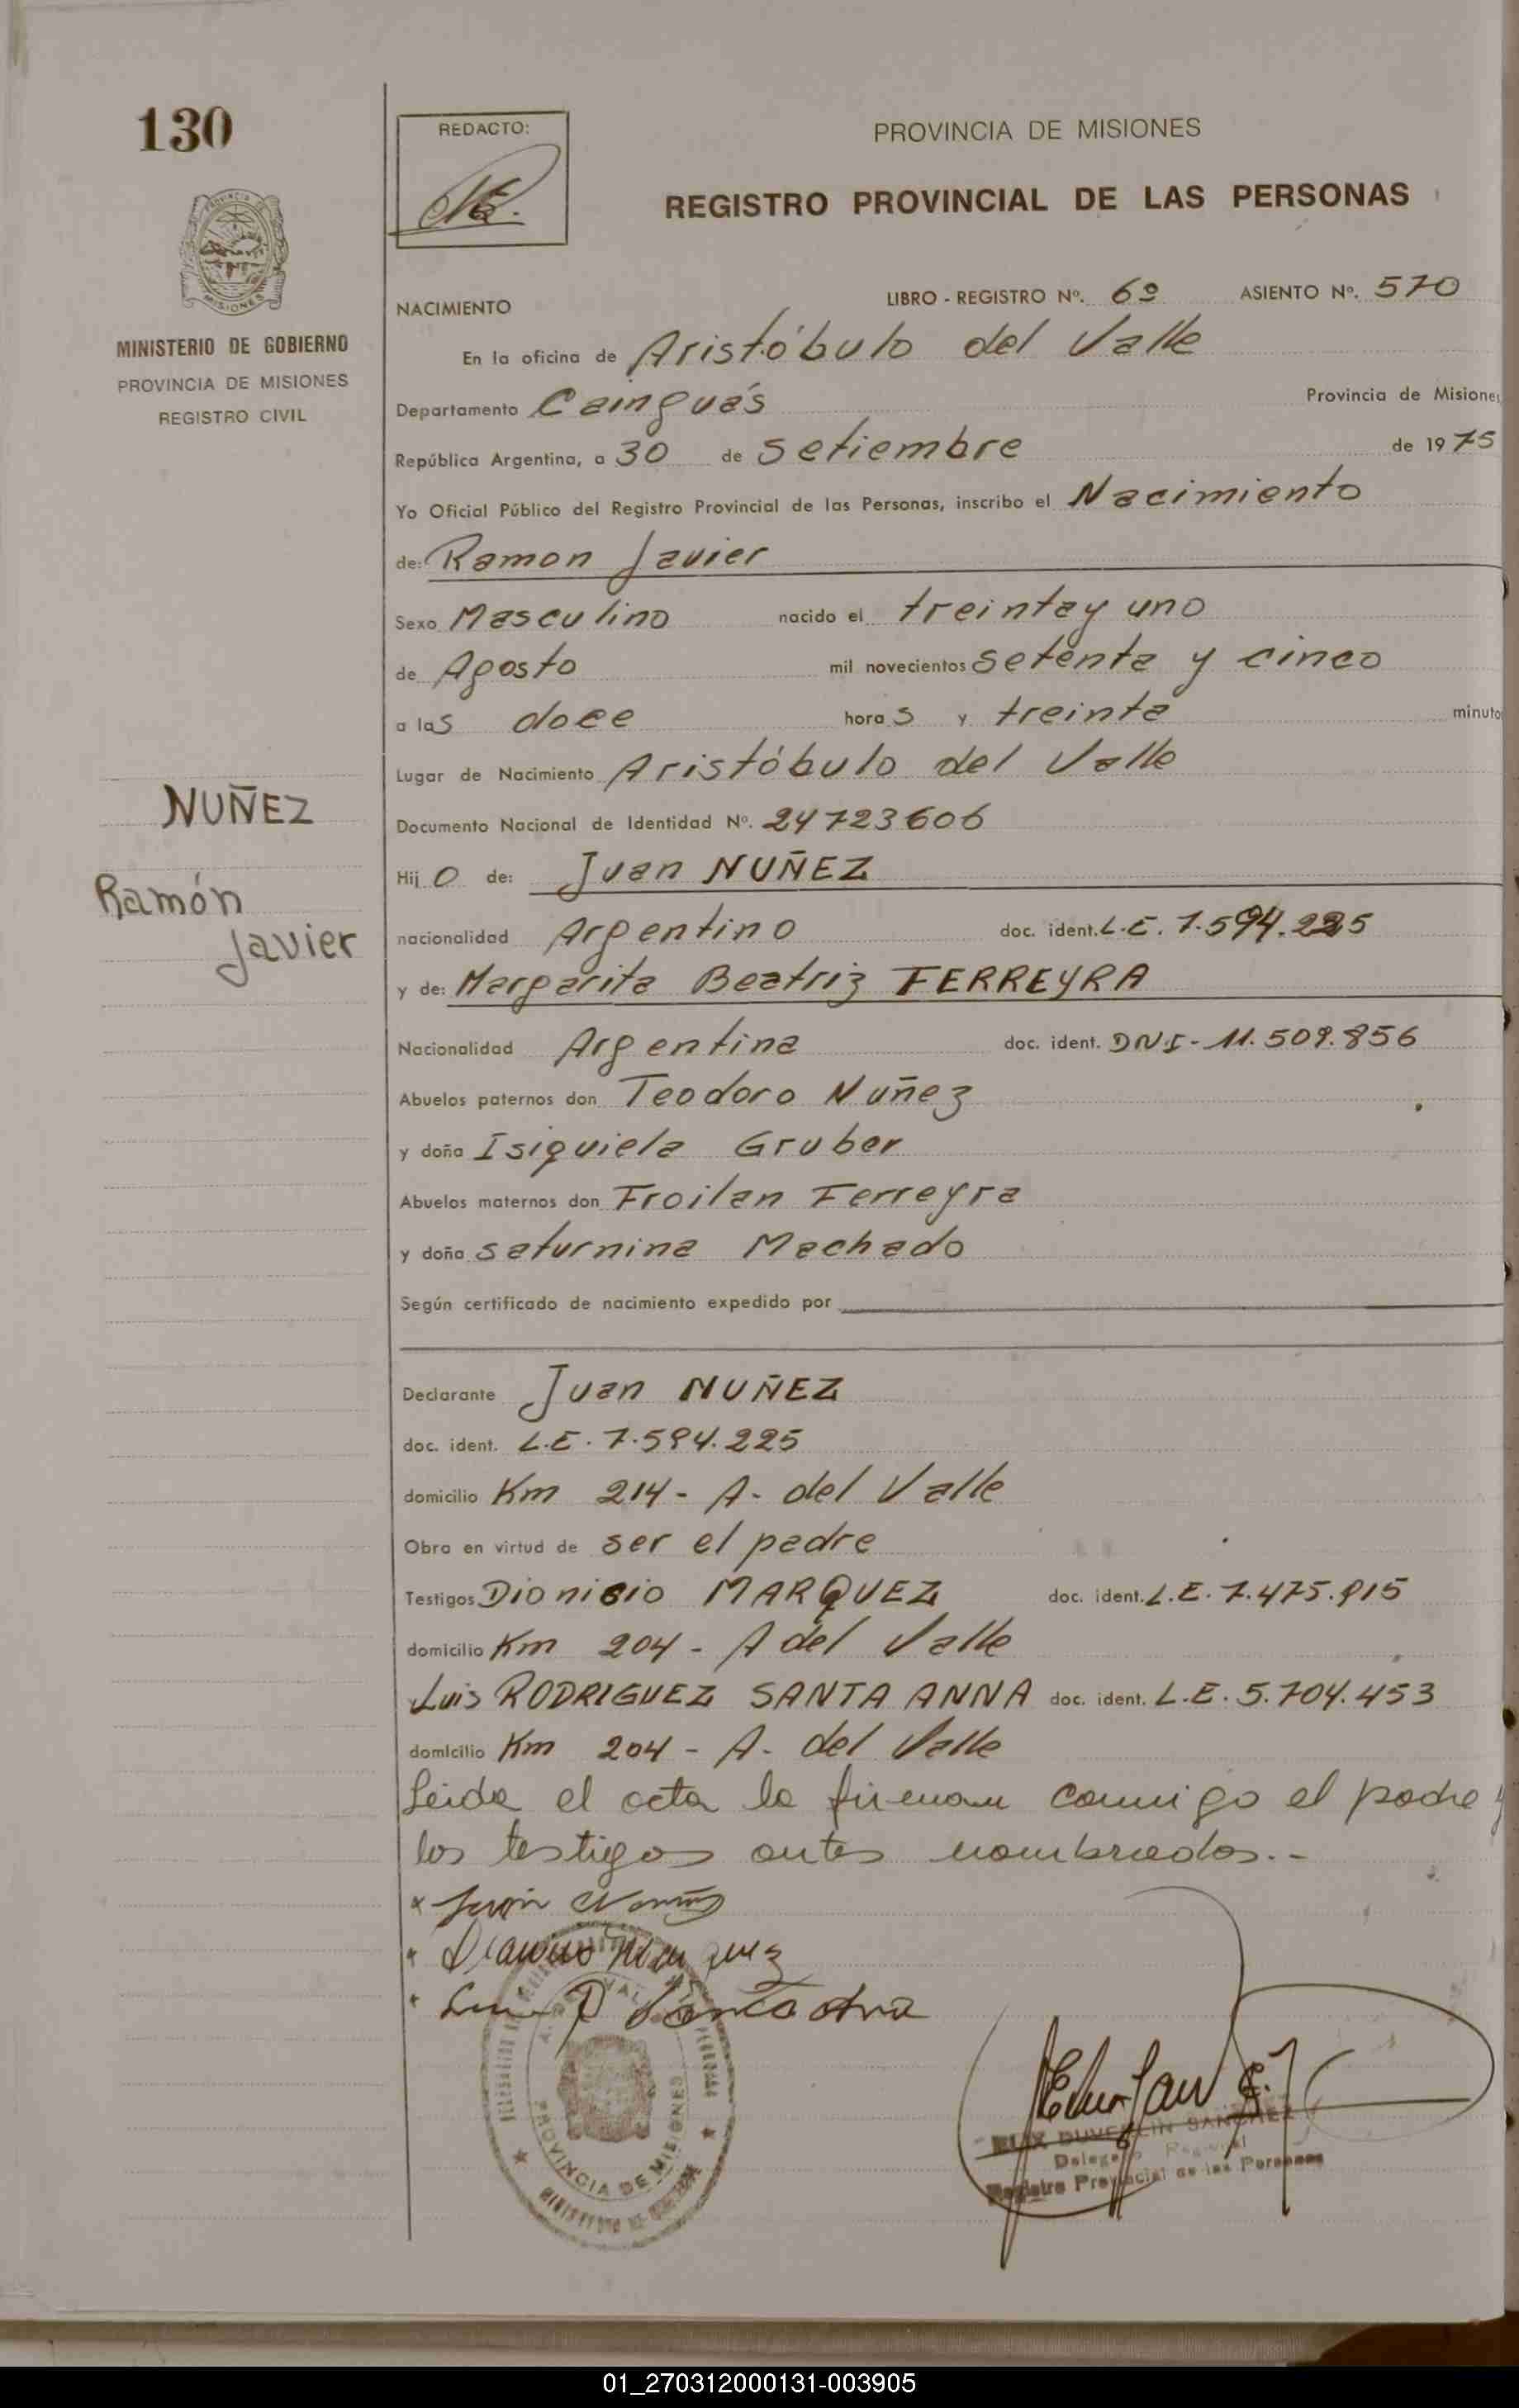 130
REDACTO:
PROVINCIA DE MISIONES
REGISTRO PROVINCIAL DE LAS PERSONAS
MISIONES
MINISTERIO DE GOBIERNO
PROVINCIA DE MISIONES
REGISTRO CIVIL
NACIMIENTO
LIBRO - REGISTRO Nº. 6º ASIENTO Nº. 570
En la oficina de Aristóbulo del Valle
Departamento Cainguás Provincia de Misiones
República Argentina, a 30 de Setiembre de 1975
Yo Oficial Público del Registro Provincial de las Personas, inscribo el Nacimiento
de: Ramon Javier
Sexo Masculino nacido el treinta y uno
de Agosto mil novecientos setenta y cinco
a las doce horas y treinta minuto
Lugar de Nacimiento Aristóbulo del Valle
NUÑEZ
Ramón
Javier
Documento Nacional de Identidad Nº. 24723606
Hijo de: Juan NUÑEZ
nacionalidad Argentino doc. ident. L.E. 7.594.225
y de: Margarita Beatriz FERREYRA
Nacionalidad Argentina doc. ident. DNI- 11.509.856
Abuelos paternos don Teodoro Nuñez
y doña Isiquiela Gruber
Abuelos maternos don Froilan Ferreyra
y doña saturnina Machado
Según certificado de nacimiento expedido por
Declarante Juan NUÑEZ
doc. ident. L.E. 7.594.225
domicilio Km 214- A. del Valle
Obra en virtud de ser el padre
Testigos Dionisio MARQUEZ doc. ident. L.E. 7.475.915
domicilio Km 204 - A del Valle
Luis RODRIGUEZ SANTA ANNA doc. ident. L.E. 5.704.453
domicilio Km 204 - A. del Valle
Leida el acta la firman conmigo el padre y
los testigos antes nombrados.-
PROVINCIA DE MISIONES
SANCHEZ
Registro Provincial de las Personas
01_270312000131-003905